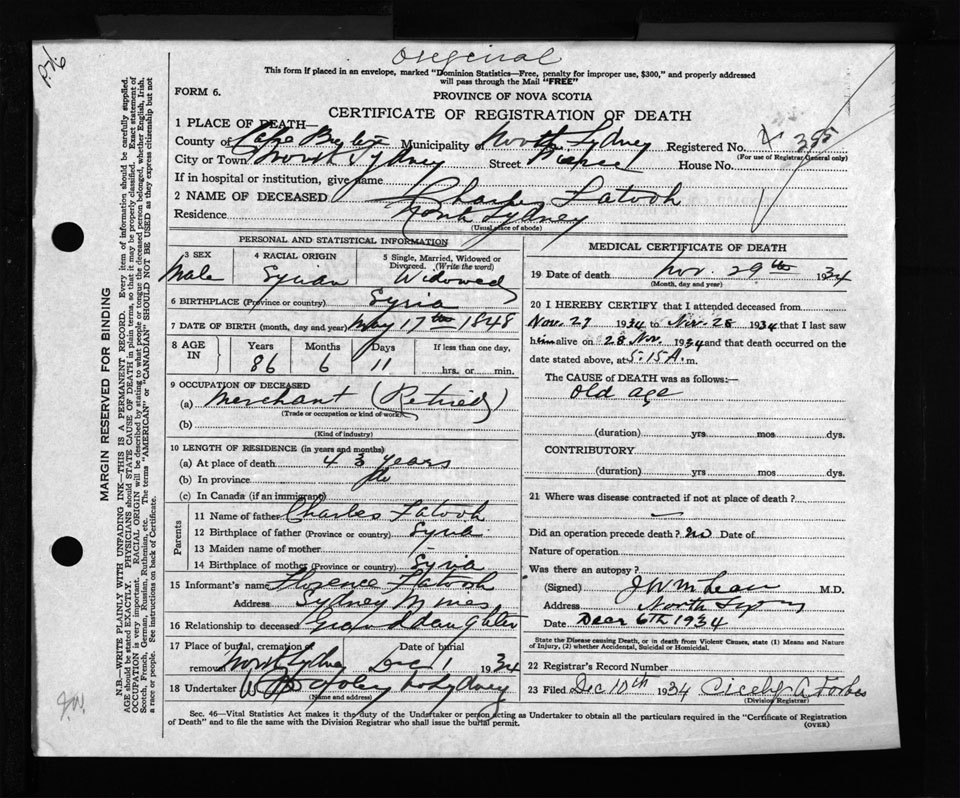 Original
This form if placed in an envelope, marked "Dominion Statistics—Free, penalty for improper use, $300," and properly addressed
will pass through the Mail "FREE"
FORM 6.
PROVINCE OF NOVA SCOTIA
CERTIFICATE OF REGISTRATION OF DEATH
1 PLACE OF DEATH—
County of Cape Breton Municipality of North Sydney Registered No. 395
(For use of Registrar General only)
City or Town North Sydney Street Pierce House No.
If in hospital or institution, give name
2 NAME OF DECEASED Charles Fatooh
Residence North Sydney
(Usual place of abode)
PERSONAL AND STATISTICAL INFORMATION
3 SEX Male
4 RACIAL ORIGIN Syrian
5 Single, Married, Widowed or Divorced. (Write the word) Widowed
6 BIRTHPLACE (Province or country) Syria
7 DATE OF BIRTH (month, day and year) May 17th 1848
8 AGE IN Years 86 Months 6 Days 11 If less than one day, hrs. or min.
9 OCCUPATION OF DECEASED
(a) Merchant (Retired)
(Trade or occupation or kind of work)
(b)
(Kind of industry)
10 LENGTH OF RESIDENCE (in years and months)
(a) At place of death 43 years
(b) In province do
(c) In Canada (if an immigrant)
Parents
11 Name of father Charles Fatooh
12 Birthplace of father (Province or country) Syria
13 Maiden name of mother
14 Birthplace of mother (Province or country) Syria
15 Informant's name Florence Fatooh
Address Sydney Mines
16 Relationship to deceased Granddaughter
17 Place of burial, cremation or removal North Sydney Date of burial Dec 1 1934
18 Undertaker Foley N Sydney
(Name and address)
MEDICAL CERTIFICATE OF DEATH
19 Date of death Nov. 29th 1934
(Month, day and year)
20 I HEREBY CERTIFY that I attended deceased from
Nov. 27 1934 to Nov. 28 1934 that I last saw
him alive on 28 Nov. 1934 and that death occurred on the
date stated above, at 5.15 A. m.
The CAUSE of DEATH was as follows:—
Old age
(duration) yrs mos dys.
CONTRIBUTORY
(duration) yrs mos dys.
21 Where was disease contracted if not at place of death?
Did an operation precede death? no Date of
Nature of operation
Was there an autopsy?
(Signed) M.D.
Address North Sydney
Date Dec 6th 1934
State the Disease causing Death, or in death from Violent Causes, state (1) Means and Nature
of Injury, (2) whether Accidental, Suicidal or Homicidal.
22 Registrar's Record Number
23 Filed Dec 10th 1934 Cicely A Forbes
(Division Registrar)
Sec. 46—Vital Statistics Act makes it the duty of the Undertaker or person acting as Undertaker to obtain all the particulars required in the "Certificate of Registration
of Death" and to file the same with the Division Registrar who shall issue the burial permit. (OVER)
MARGIN RESERVED FOR BINDING
N.B.—WRITE PLAINLY WITH UNFADING INK—THIS IS A PERMANENT RECORD. Every item of information should be carefully supplied.
AGE should be stated EXACTLY. PHYSICIANS should STATE CAUSE OF DEATH in plain terms, so that it may be properly classified. Exact statement of
OCCUPATION is very important. RACIAL ORIGIN will be described by stating to what people or tongue the deceased person belonged, whether English, Irish,
Scotch, French, German, Russian, Ruthenian, etc. The terms "AMERICAN" or "CANADIAN" SHOULD NOT BE USED as they express citizenship but not
a race or people. See instructions on back of Certificate.